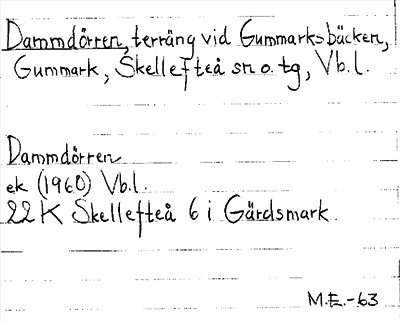 Dammdörren, terräng vid Gummarksbäcken,
Gummark, Skellefteå sn o. tg, Vb. l.
Dammdörren
ek (1960) Vb. l.
22 K Skellefteå 6 i Gärdsmark
M.E.-63